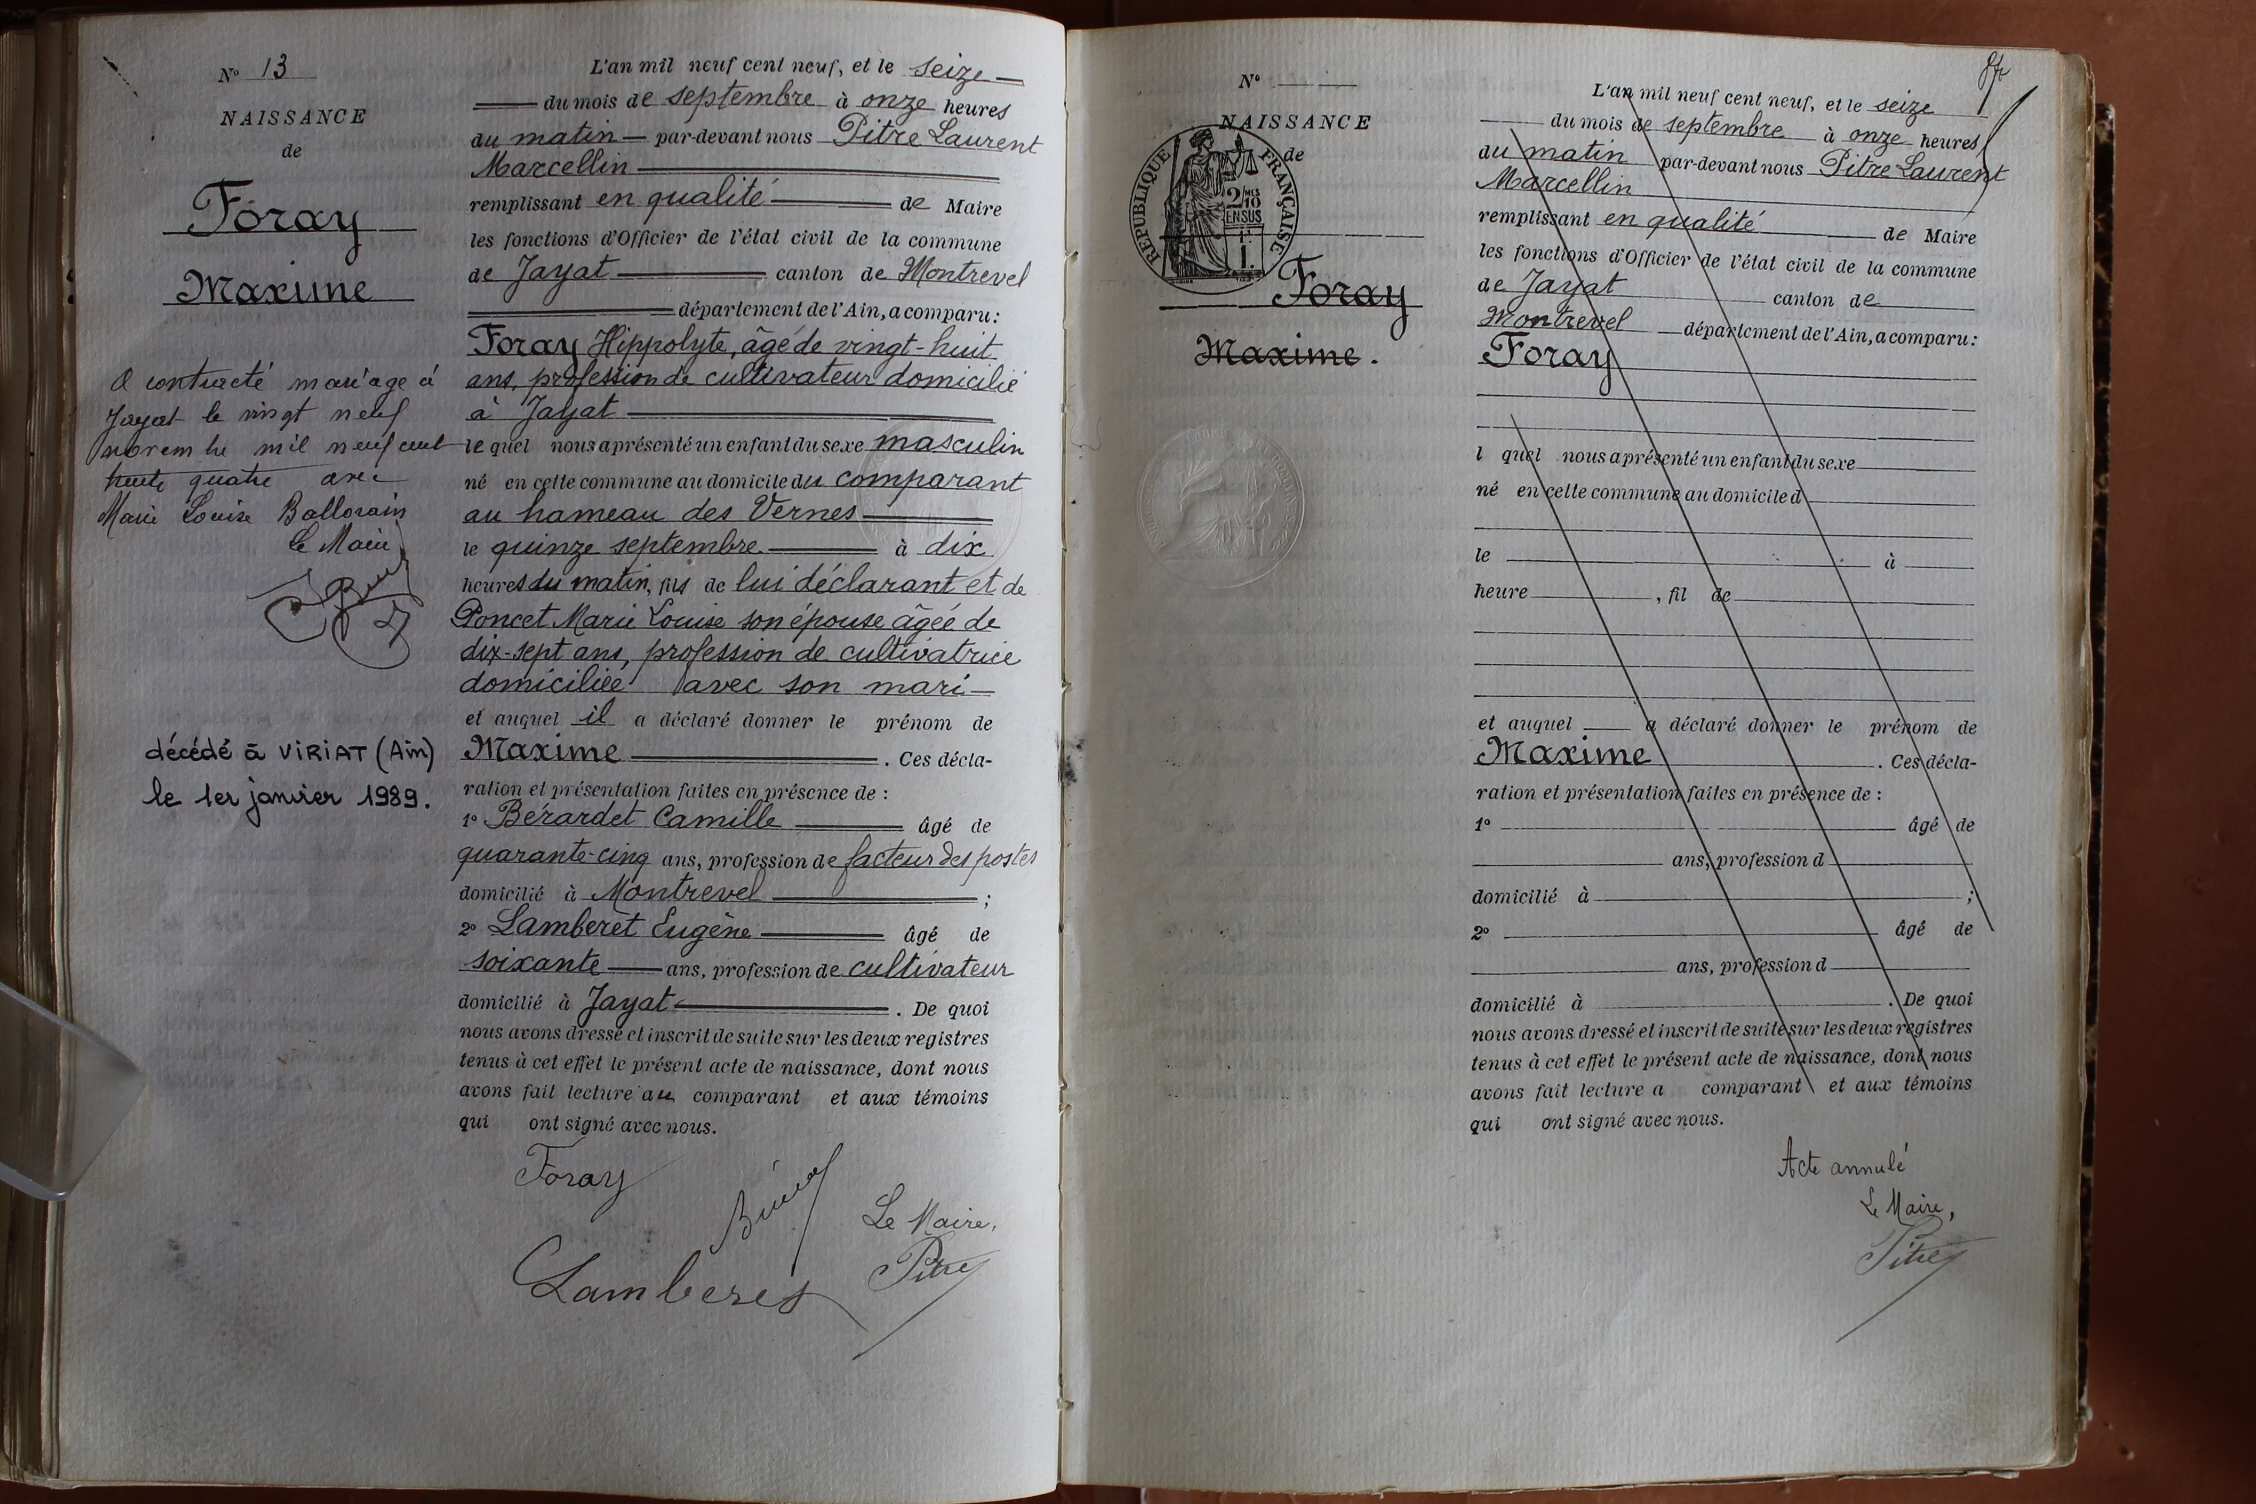 N° 13
NAISSANCE
de
Foray
Maxime
A contracté mariage à
Jayat le vingt neuf
novembre mil neuf cent
trente quatre avec
Marie Louise Ballorain
Le Maire
décédé à VIRIAT (Ain)
le 1er janvier 1989.
L'an mil neuf cent neuf, et le seize
du mois de septembre à onze heures
du matin par-devant nous Pitre Laurent
Marcellin
remplissant en qualité de Maire
les fonctions d'Officier de l'état civil de la commune
de Jayat canton de Montrevel
département de l'Ain, a comparu:
Foray Hippolyte, âgé de vingt-huit
ans, profession de cultivateur domicilié
à Jayat
lequel nous a présenté un enfant du sexe masculin
né en cette commune au domicile du comparant
au hameau des Vernes
le quinze septembre à dix
heures du matin, fils de lui déclarant et de
Poncet Marie Louise son épouse âgée de
dix-sept ans, profession de cultivatrice
domiciliée avec son mari
et auquel il a déclaré donner le prénom de
Maxime . Ces décla-
ration et présentation faites en présence de :
1° Bérardet Camille âgé de
quarante-cinq ans, profession de facteur des postes
domicilié à Montrevel ;
2° Lamberet Eugène âgé de
soixante ans, profession de cultivateur
domicilié à Jayat . De quoi
nous avons dressé et inscrit de suite sur les deux registres
tenus à cet effet le présent acte de naissance, dont nous
avons fait lecture au comparant et aux témoins
qui ont signé avec nous.
Foray
Le Maire,
Lamberet
Pitre
N°
NAISSANCE
de
RÉPUBLIQUE FRANÇAISE
2/10 MES
EN SUS
1F.
Foray
Maxime.
L'an mil neuf cent neuf, et le seize
du mois de septembre à onze heures
du matin par-devant nous Pitre Laurent
Marcellin
remplissant en qualité de Maire
les fonctions d'Officier de l'état civil de la commune
de Jayat canton de
Montrevel département de l'Ain, a comparu:
Foray
l quel nous a présenté un enfant du sexe
né en cette commune au domicile d
le à
heure , fil de
et auquel a déclaré donner le prénom de
Maxime . Ces décla-
ration et présentation faites en présence de :
1° âgé de
ans, profession d
domicilié à ;
2° âgé de
ans, profession d
domicilié à . De quoi
nous avons dressé et inscrit de suite sur les deux registres
tenus à cet effet le présent acte de naissance, dont nous
avons fait lecture a comparant et aux témoins
qui ont signé avec nous.
Acte annulé
Le Maire,
Pitre